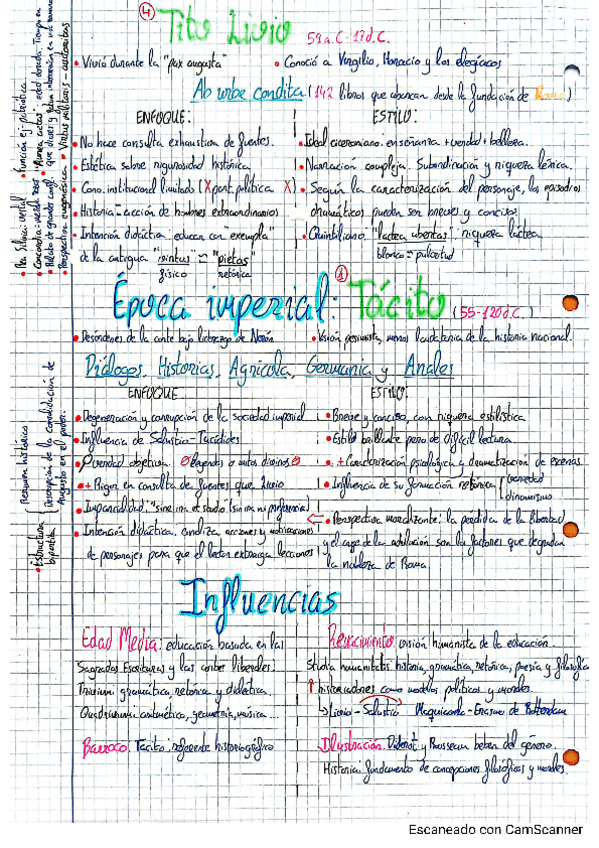 ④
Tito Livio 59 a.C - 17 d.C.
• Vivió durante la "pax augusta" • Conoció a Virgilio, Horacio y los elegíacos
Ab urbe condita (142 libros que abarcan desde la fundación de Roma)
ENFOQUE:
• No hace consulta exhaustiva de fuentes.
• Estética sobre rigurosidad histórica
• Cono. institucional limitado (X part. política X)
• Historia = acción de hombres extraordinarios
• Intención didáctica: educar con "exempla"
de la antigua "virtus" = "pietas"
físico retórica
ESTILO:
• Ideal ciceroniano: enseñanza + verdad + belleza.
• Narración compleja. Subordinación y riqueza léxica.
• Según la caracterización del personaje, los episodios
dramáticos pueden ser breves y concisos.
• Quintiliano: "lactea ubertas": riqueza láctea
blanco = pulcritud
• Función ej. patriótica
• Perspectiva
• Virtus militares - auctoritas
①
Época imperial: Tácito (55-120 d.C.)
• Desórdenes de la corte bajo liderazgo de Nerón • Visión pesimista, menos laudatoria de la historia nacional.
Diálogos, Historias, Agrícola, Germania y Anales
ENFOQUE
• Degeneración y corrupción de la sociedad imperial
• Influencia de Salustio - Tucídides
• verdad objetiva. leyendas o mitos divinos
• + Rigor en consulta de fuentes que Livio
• Imparcialidad: "sine ira et studio" (sin ira ni preferencia)
• Intención didáctica: analiza acciones y motivaciones
de personajes para que el lector extraiga lecciones
ESTILO:
• Breve y conciso, con riqueza estilística
• Estilo brillante pero de difícil lectura.
• + Caracterización psicológica y dramatización de escenas
• Influencia de su formación retórica variedad
dinamismo
• Perspectiva moralizante: la pérdida de la libertad
y el auge de la adulación son los factores que degradan
la nobleza de Roma.
• Estructura bipartida
Resumen histórico
Descripción de la consolidación de
Augusto en el poder.
Influencias
Edad Media: educación basada en las
Sagradas Escrituras y las artes liberales.
Trivium: gramática, retórica y didáctica.
Quadrivium: aritmética, geometría, música...
Barroco: Tácito, referente historiográfico
Renacimiento: visión humanista de la educación.
Studia humanitatis: historia, gramática, retórica, poesía y filosofía
↑ historiadores como modelos políticos y morales.
↳ Livio - Salustio Maquiavelo - Erasmo de Rotterdam
Ilustración: Diderot y Rousseau beben del género.
Historia: fundamento de concepciones filosóficas y morales.
Escaneado con CamScanner